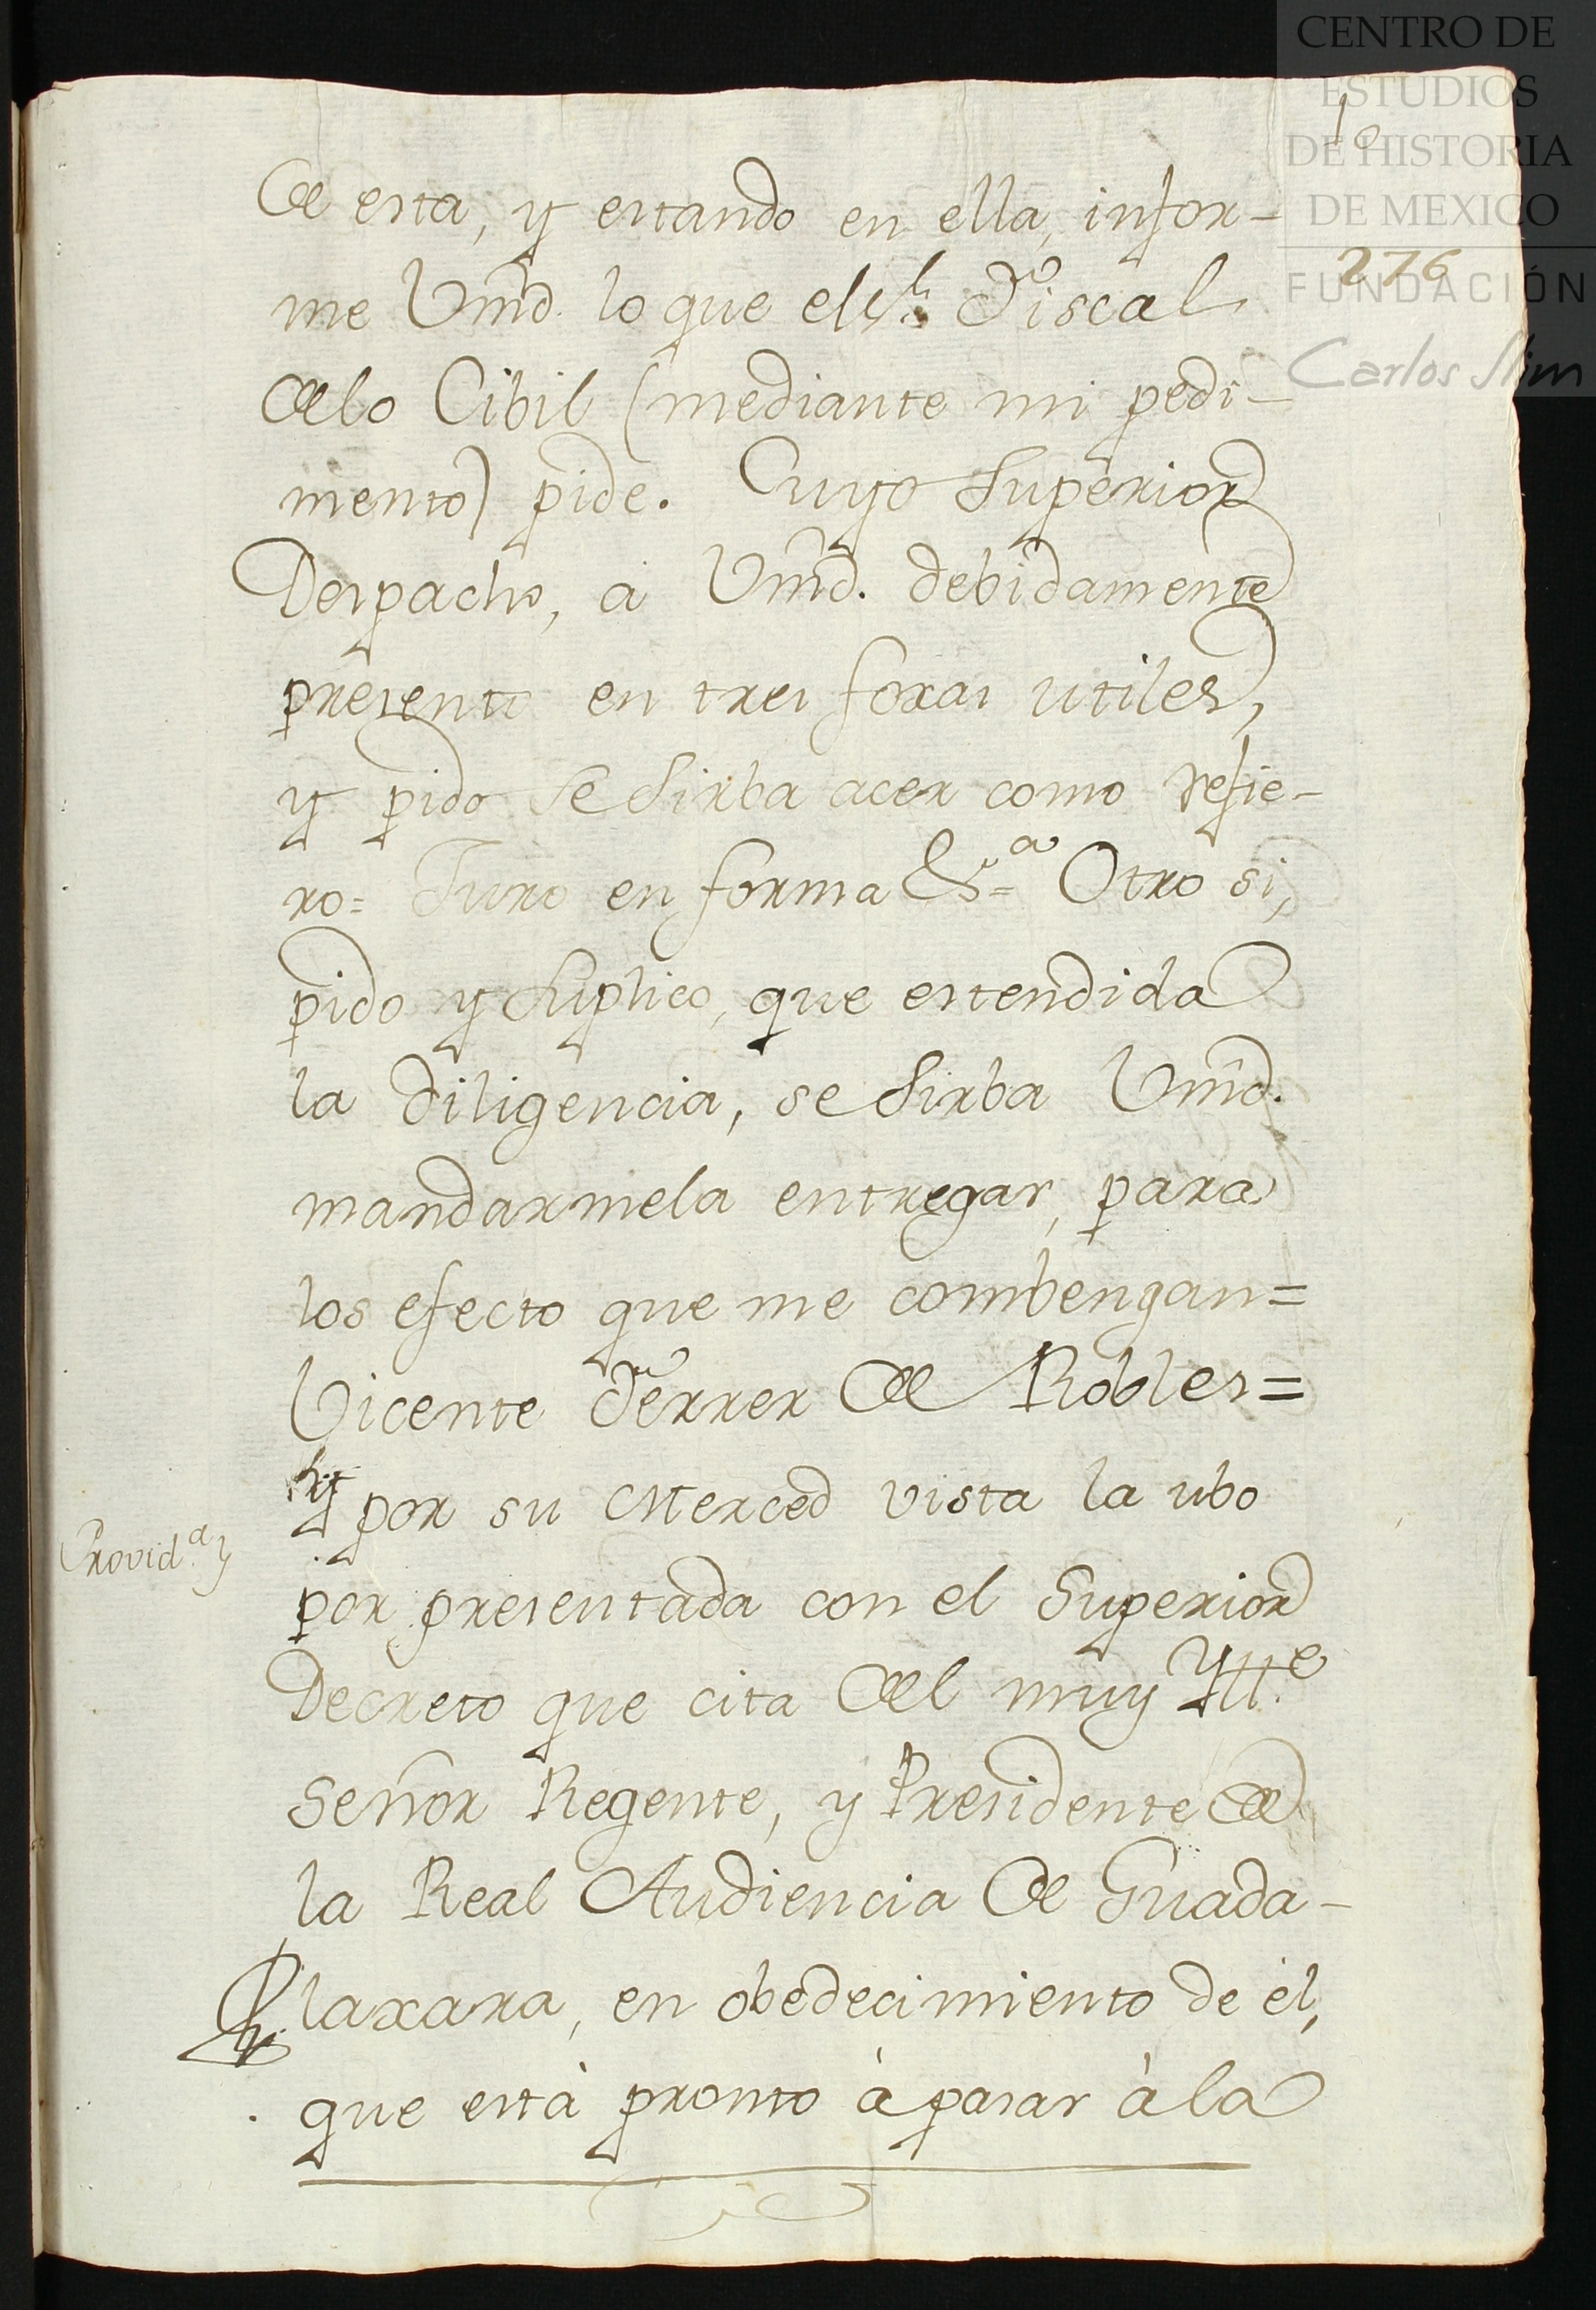 CENTRO DE
ESTUDIOS
DE HISTORIA
DE MEXICO
FUNDACIÓN
Carlos Slim
10
276
de esta, y estando en ella, infor-
me Vmd. lo que el Sr. Fiscal
de lo Cibil (mediante mi pedi-
mento) pide. Cuyo Superior
Despacho, a Vmd. debidamente
presento en tres foxas utiles,
y pido se Sirba acer como refie-
ro= Juro en forma &ª Otro si,
pido y Suplico, que estendida
la diligencia, se Sirba Vmd.
mandarmela entregar, para
los efecto que me combengan=
Vicente Ferrer de Robles=
Provid.ª
y por su Merced vista la ubo
por presentada con el Superior
Decreto que cita del muy Ylt.e
Señor Regente, y Presidente de
la Real Audiencia de Guada-
laxara, en obedecimiento de él,
que està pronto à pasar à la